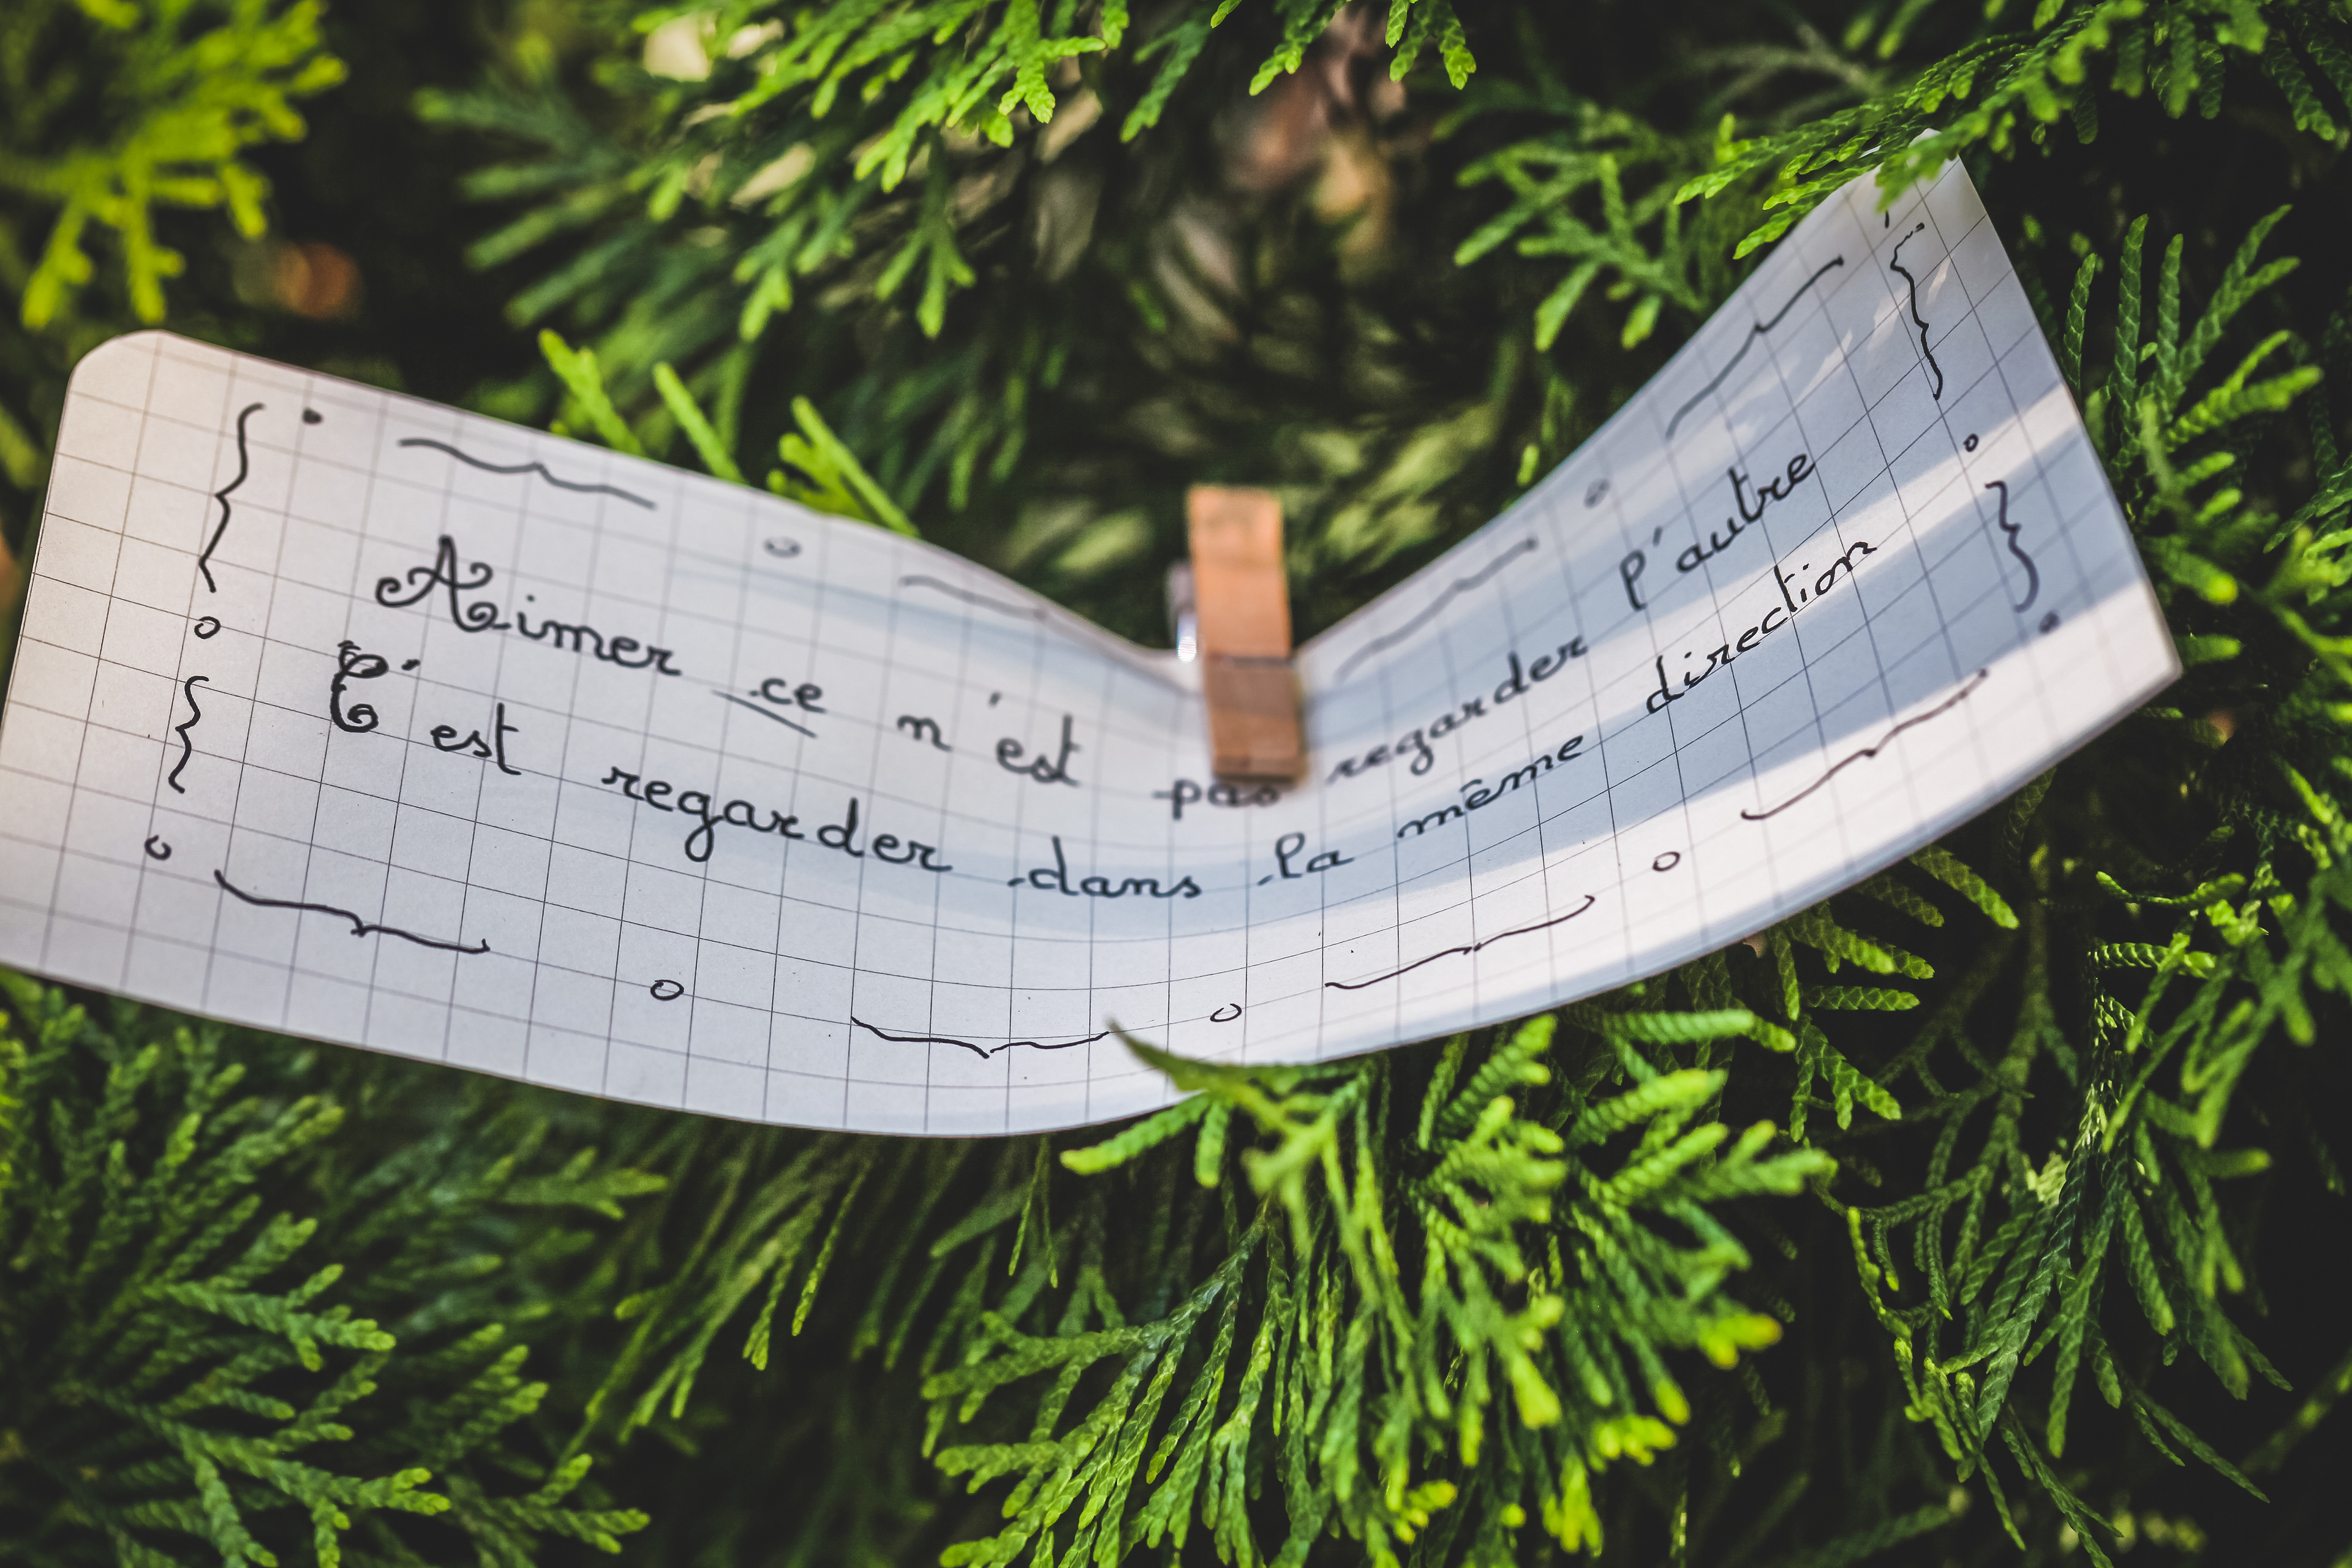 Aimer ce n'est pas regarder l'autre
C'est regarder dans la même direction